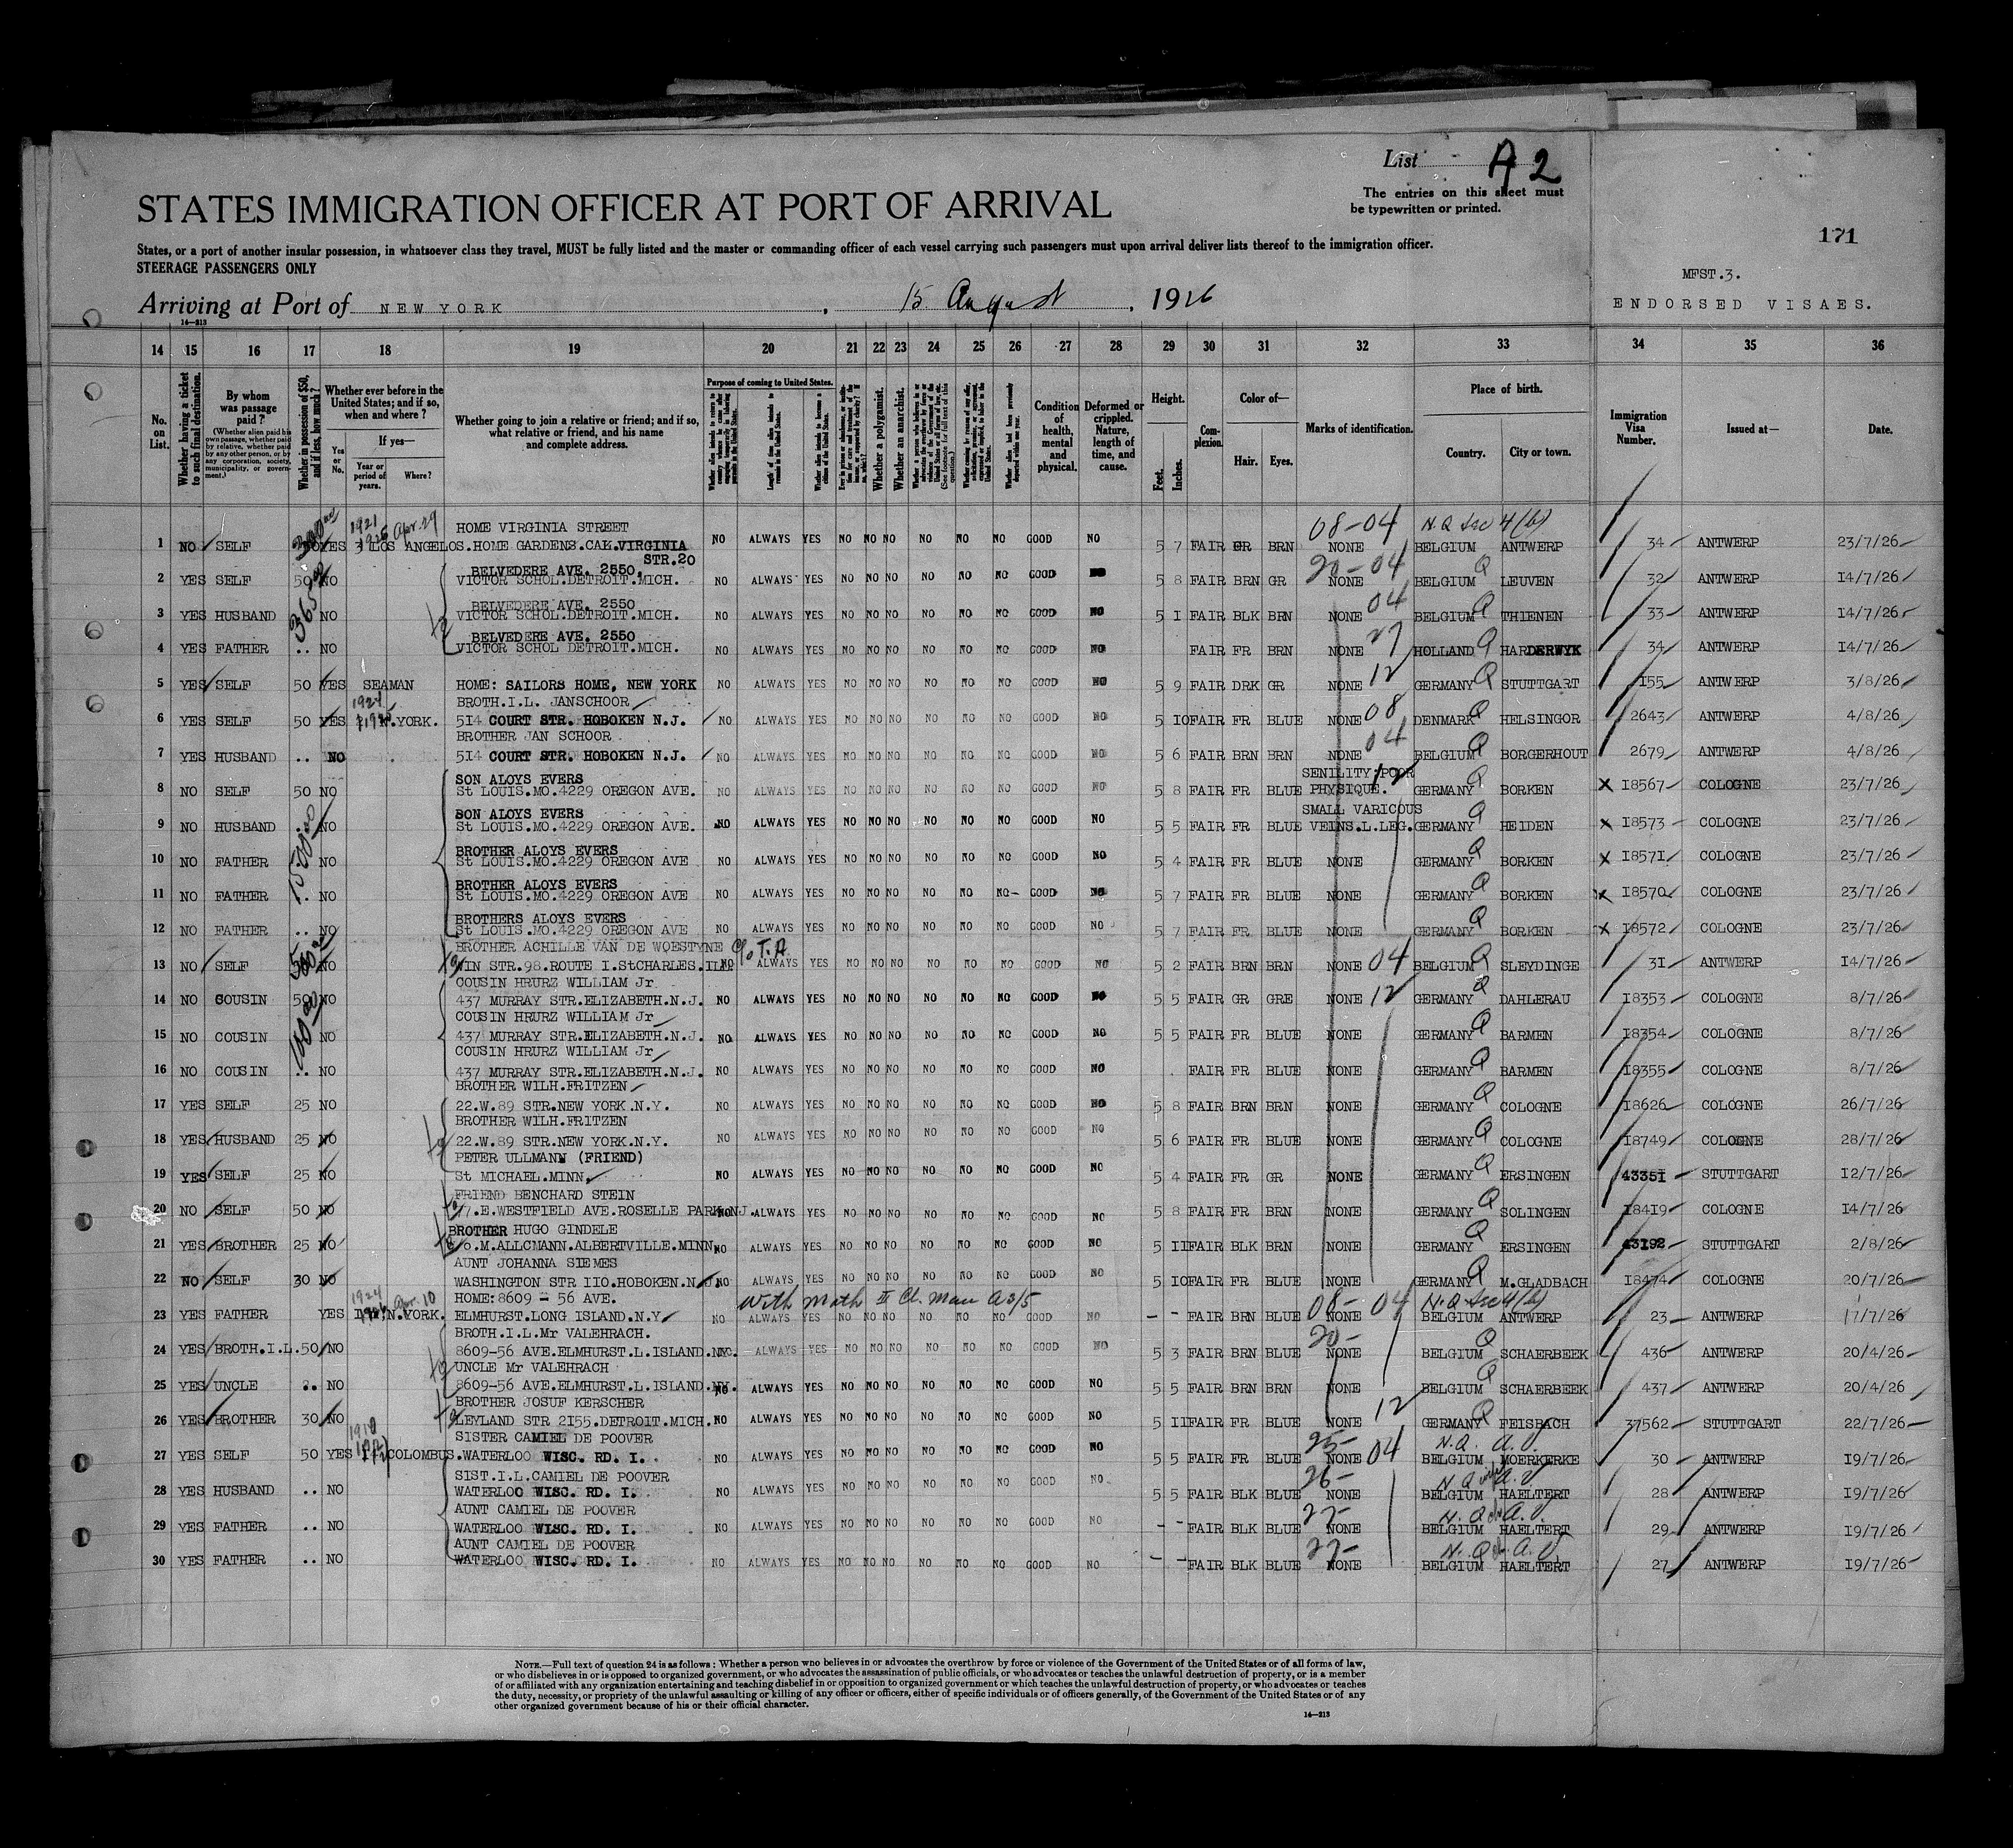 List A2
The entries on this sheet must
be typewritten or printed.
STATES IMMIGRATION OFFICER AT PORT OF ARRIVAL
171
States, or a port of another insular possession, in whatsoever class they travel, MUST be fully listed and the master or commanding officer of each vessel carrying such passengers must upon arrival deliver lists thereof to the immigration officer.
STEERAGE PASSENGERS ONLY
MFST.3.
Arriving at Port of NEW YORK, 15 August, 1926
ENDORSED VISAES.
14—213
14 15 16 17 18 19 20 21 22 23 24 25 26 27 28 29 30 31 32 33 34 35 36
No. on List.
Whether having a ticket to such final destination.
By whom was passage paid?
(Whether alien paid his own passage, whether paid by relative, whether paid by any other person, or by any corporation, society, municipality, or government.)
Whether in possession of $50, and if less, how much?
Whether ever before in the United States; and if so, when and where?
Yes or No.
If yes—
Year or period of years.
Where?
Whether going to join a relative or friend; and if so, what relative or friend, and his name and complete address.
Purpose of coming to United States.
Whether a polygamist.
Whether an anarchist.
Condition of health, mental and physical.
Deformed or crippled. Nature, length of time, and cause.
Height.
Feet. Inches.
Complexion.
Color of—
Hair. Eyes.
Marks of identification.
Place of birth.
Country. City or town.
Immigration Visa Number.
Issued at—
Date.
08-04 N.Q Sec 4(b)
1921 1926 Apr. 29
HOME VIRGINIA STREET
1 NO SELF YES LOS ANGELOS.HOME GARDENS.CAK.VIRGINIA STR.20 NO ALWAYS YES NO NO NO NO NO NO GOOD NO 5 7 FAIR GR BRN NONE BELGIUM ANTWERP 34 ANTWERP 23/7/26
BELVEDERE AVE. 2550, 20-04 Q
2 YES SELF 50 NO VICTOR SCHOL.DETROIT.MICH. NO ALWAYS YES NO NO NO NO NO NO GOOD NO 5 8 FAIR BRN GR NONE BELGIUM LEUVEN 32 ANTWERP 14/7/26
BELVEDERE AVE. 2550 04 Q
3 YES HUSBAND NO VICTOR SCHOL.DETROIT.MICH. NO ALWAYS YES NO NO NO NO NO NO GOOD NO 5 I FAIR BLK BRN NONE BELGIUM THIENEN 33 ANTWERP 14/7/26
BELVEDERE AVE. 2550 27 Q
4 YES FATHER .. NO VICTOR SCHOL DETROIT.MICH. NO ALWAYS YES NO NO NO NO NO NO GOOD NO FAIR FR BRN NONE HOLLAND HARDERWYK 34 ANTWERP 14/7/26
12 Q
5 YES SELF 50 YES SEAMAN HOME: SAILORS HOME, NEW YORK NO ALWAYS YES NO NO NO NO NO NO GOOD NO 5 9 FAIR DRK GR NONE GERMANY STUTTGART 155 ANTWERP 3/8/26
1924 BROTH.I.L. JANSCHOOR 08 Q
6 YES SELF 50 YES 1925 N.YORK. 514 COURT STR. HOBOKEN N.J. NO ALWAYS YES NO NO NO NO NO NO GOOD NO 5 IO FAIR FR BLUE NONE DENMARK HELSINGOR 2643 ANTWERP 4/8/26
BROTHER JAN SCHOOR 04 Q
7 YES HUSBAND .. NO 514 COURT STR. HOBOKEN N.J. NO ALWAYS YES NO NO NO NO NO NO GOOD NO 5 6 FAIR BRN BRN NONE BELGIUM BORGERHOUT 2679 ANTWERP 4/8/26
SON ALOYS EVERS SENILITY:POOR 12 Q
8 NO SELF 50 NO St LOUIS.MO.4229 OREGON AVE. NO ALWAYS YES NO NO NO NO NO NO GOOD NO 5 8 FAIR FR BLUE PHYSIQUE. GERMANY BORKEN X I8567 COLOGNE 23/7/26
SON ALOYS EVERS SMALL VARICOUS Q
9 NO HUSBAND NO St LOUIS.MO.4229 OREGON AVE. NO ALWAYS YES NO NO NO NO NO NO GOOD NO 5 5 FAIR FR BLUE VEINS.L.LEG. GERMANY HEIDEN X I8573 COLOGNE 23/7/26
BROTHER ALOYS EVERS Q
10 NO FATHER NO St LOUIS.MO.4229 OREGON AVE NO ALWAYS YES NO NO NO NO NO NO GOOD NO 5 4 FAIR FR BLUE NONE GERMANY BORKEN X I857I COLOGNE 23/7/26
BROTHER ALOYS EVERS Q
11 NO FATHER NO St LOUIS.MO.4229 OREGON AVE NO ALWAYS YES NO NO NO NO NO NO- GOOD NO 5 7 FAIR FR BLUE NONE GERMANY BORKEN X I8570 COLOGNE 23/7/26
BROTHERS ALOYS EVERS Q
12 NO FATHER .. NO St LOUIS.MO.4229 OREGON AVE NO ALWAYS YES NO NO NO NO NO NO GOOD NO 5 7 FAIR FR BLUE NONE GERMANY BORKEN X I8572 COLOGNE 23/7/26
BROTHER ACHILLE VAN DE WOESTYNE c/o T.A. 04 Q
13 NO SELF NO STR.98.ROUTE I.StCHARLES.ILL. NO ALWAYS YES NO NO NO NO NO NO GOOD NO 5 2 FAIR BRN BRN NONE BELGIUM SLEYDINGE 3I ANTWERP 14/7/26
COUSIN HRURZ WILLIAM Jr. 12 Q
14 NO COUSIN 50 NO 437 MURRAY STR.ELIZABETH.N.J. NO ALWAYS YES NO NO NO NO NO NO GOOD NO 5 5 FAIR GR GRE NONE GERMANY DAHLERAU I8353 COLOGNE 8/7/26
COUSIN HRURZ WILLIAM Jr Q
15 NO COUSIN NO 437 MURRAY STR.ELIZABETH.N.J. NO ALWAYS YES NO NO NO NO NO NO GOOD NO 5 5 FAIR FR BLUE NONE GERMANY BARMEN I8354 COLOGNE 8/7/26
COUSIN HRURZ WILLIAM Jr Q
16 NO COUSIN .. NO 437 MURRAY STR.ELIZABETH.N.J. NO ALWAYS YES NO NO NO NO NO NO GOOD NO FAIR FR BLUE NONE GERMANY BARMEN I8355 COLOGNE 8/7/26
BROTHER WILH.FRITZEN Q
17 YES SELF 25 NO 22.W.89 STR.NEW YORK.N.Y. NO ALWAYS YES NO NO NO NO NO NO GOOD NO 5 8 FAIR BRN BRN NONE GERMANY COLOGNE I8626 COLOGNE 26/7/26
BROTHER WILH.FRITZEN Q
18 YES HUSBAND 25 NO 22.W.89 STR.NEW YORK.N.Y. NO ALWAYS YES NO NO NO NO NO NO GOOD NO 5 6 FAIR FR BLUE NONE GERMANY COLOGNE I8749 COLOGNE 28/7/26
PETER ULLMANN (FRIEND) Q
19 YES SELF 25 NO St MICHAEL.MINN. NO ALWAYS YES NO NO NO NO NO NO GOOD NO 5 4 FAIR FR GR NONE GERMANY ERSINGEN 4335I STUTTGART I2/7/26
FRIEND BENCHARD STEIN Q
20 NO SELF 50 NO 17.E.WESTFIELD AVE.ROSELLE PARK.NJ. NO ALWAYS YES NO NO NO NO NO NO GOOD NO 5 8 FAIR FR BRN NONE GERMANY SOLINGEN I8419 COLOGNE 14/7/26
BROTHER HUGO GINDELE Q
21 YES BROTHER 25 NO c/o.M.ALLCMANN.ALBERTVILLE.MINN. NO ALWAYS YES NO NO NO NO NO NO GOOD NO 5 II FAIR BLK BRN NONE GERMANY ERSINGEN 43192 STUTTGART 2/8/26
AUNT JOHANNA SIEMES Q
22 NO SELF 30 NO WASHINGTON STR IIO.HOBOKEN.N.J. NO ALWAYS YES NO NO NO NO NO NO GOOD NO 5 IO FAIR FR BLUE NONE GERMANY M.GLADBACH I8474 COLOGNE 20/7/26
1924 Apr. 10 HOME:8609 - 56 AVE. With Moth II Cl. Man A 3/5 08- 04 N.Q Sec 4(b)
23 YES FATHER YES 1926 N.YORK. ELMHURST.LONG ISLAND.N.Y NO ALWAYS YES NO NO NO NO NO NO GOOD NO - - FAIR BRN BLUE NONE BELGIUM ANTWERP 23 ANTWERP 17/7/26
BROTH.I.L.Mr VALEHRACH. 20- Q
24 YES BROTH.I.L. 50 NO 8609-56 AVE.ELMHURST.L.ISLAND.NY. ALWAYS YES NO NO NO NO NO NO GOOD NO 5 3 FAIR BRN BLUE NONE BELGIUM SCHAERBEEK 436 ANTWERP 20/4/26
UNCLE Mr VALEHRACH Q
25 YES UNCLE .. NO 8609-56 AVE.ELMHURST.L.ISLAND.NY. NO ALWAYS YES NO NO NO NO NO NO GOOD NO 5 5 FAIR BRN BRN NONE BELGIUM SCHAERBEEK 437 ANTWERP 20/4/26
BROTHER JOSUF KERSCHER 12 Q
26 YES BROTHER 30 NO LEYLAND STR 2I55.DETROIT.MICH. NO ALWAYS YES NO NO NO NO NO NO GOOD NO 5 II FAIR FR BLUE NONE GERMANY FEISBACH 37562 STUTTGART 22/7/26
SISTER CAMIEL DE POOVER 25- 04 N.Q. A.V.
27 YES SELF 50 YES COLOMBUS.WATERLOO WISC. RD. I. NO ALWAYS YES NO NO NO NO NO NO GOOD NO 5 5 FAIR FR BLUE NONE BELGIUM MOERKERKE 30 ANTWERP I9/7/26
SIST.I.L.CAMIEL DE POOVER 26- N.Q wife A.V
28 YES HUSBAND .. NO WATERLOO WISC. RD. I. NO ALWAYS YES NO NO NO NO NO NO GOOD NO 5 5 FAIR BLK BLUE NONE BELGIUM HAELTERT 28 ANTWERP I9/7/26
AUNT CAMIEL DE POOVER 27- N.Q A.V.
29 YES FATHER .. NO WATERLOO WISC. RD. I. NO ALWAYS YES NO NO NO NO NO NO GOOD NO - - FAIR BLK BLUE NONE BELGIUM HAELTERT 29 ANTWERP I9/7/26
AUNT CAMIEL DE POOVER 27- N.Q A.V.
30 YES FATHER .. NO WATERLOO WISC. RD. I. NO ALWAYS YES NO NO NO NO NO NO GOOD NO - - FAIR BLK BLUE NONE BELGIUM HAELTERT 27 ANTWERP I9/7/26
NOTE.—Full text of question 24 is as follows: Whether a person who believes in or advocates the overthrow by force or violence of the Government of the United States or of all forms of law,
or who disbelieves in or is opposed to organized government, or who advocates the assassination of public officials, or who advocates or teaches the unlawful destruction of property, or is a member
of or affiliated with any organization entertaining and teaching disbelief in or opposition to organized government or which teaches the unlawful destruction of property, or who advocates or teaches
the duty, necessity, or propriety of the unlawful assaulting or killing of any officer or officers, either of specific individuals or of officers generally, of the Government of the United States or of any
other organized government because of his or their official character.
14—213